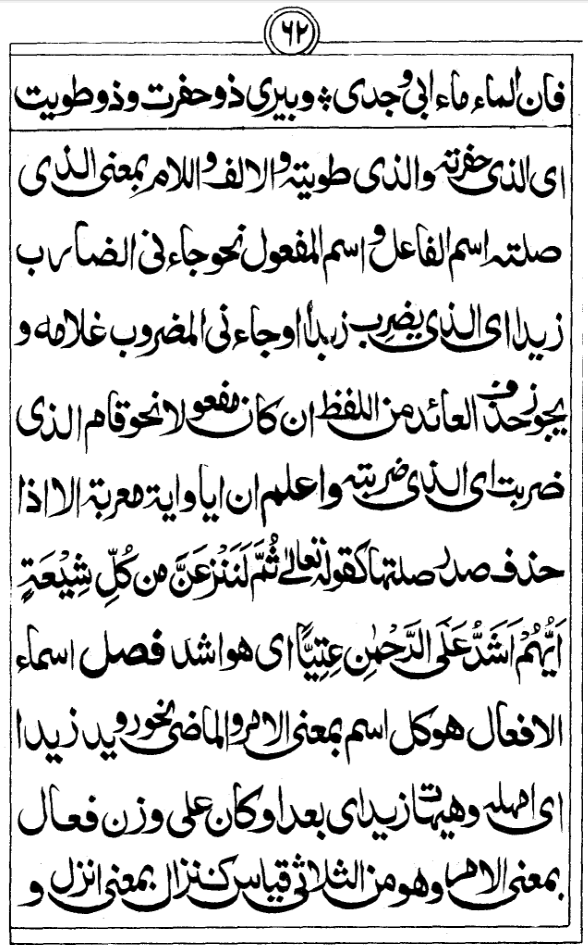 ۶۲
فان الماء ماء ابی وجدی ؞ وبیری ذو حفرت و ذو طویت
ای الذی حفرتہ والذی طویتہ والالف واللام بمعنی الذی
صلتہ اسم الفاعل و اسم المفعول نحو جاءنی الضارب
زیدا ای الذی یضرب زیدا او جاءنی المضروب غلامہ و
یجوز حذف العائد من اللفظ ان کان مفعولا نحو قام الذی
ضربت ای الذی ضربتہ واعلم ان ایا وایۃ معربۃ الا اذا
حذف صدر صلتہا کقولہ تعالیٰ ثُمَّ لَنَنْزِعَنَّ مِن کُلِّ شِیْعَۃٍ
اَیُّہُمْ اَشَدُّ عَلَی الرَّحْمٰنِ عِتِیًّا ای ہو اشد فصل اسماء
الافعال ہو کل اسم بمعنی الامر والماضی نحو روید زیدا
ای امہلہ وہیہات زید ای بعد او کان علی وزن فعال
بمعنی الامر وہو من الثلاثی قیاس کنزال بمعنی انزل و